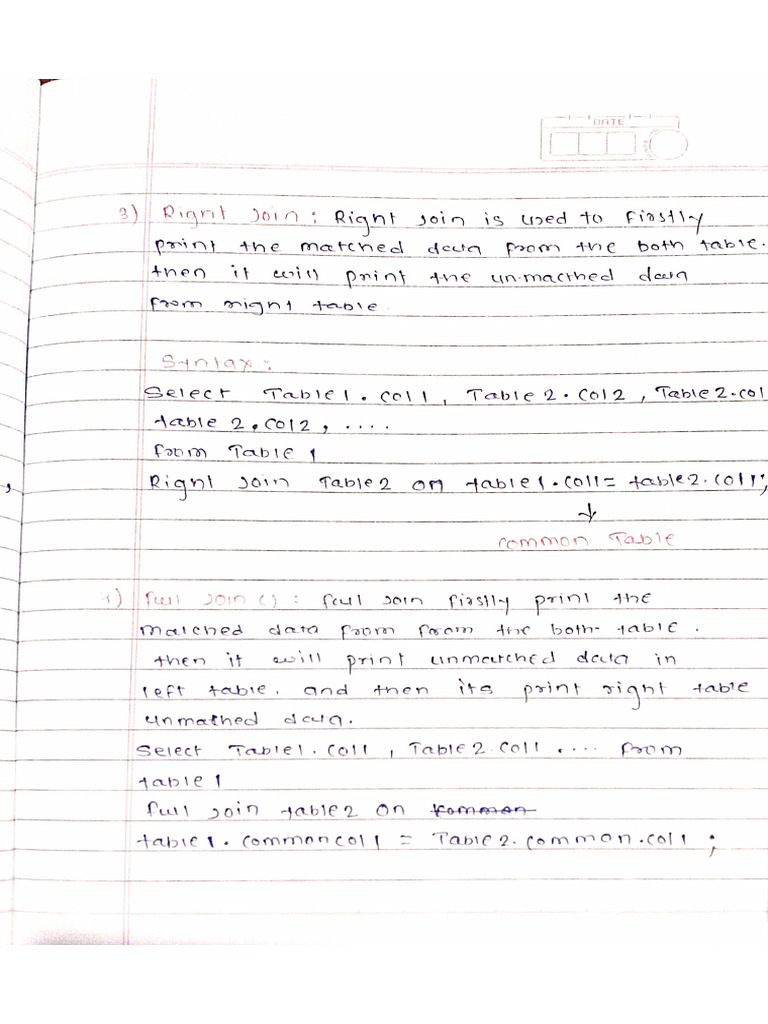 DATE
3) Right Join : Right Join is used to Firstly
print the matched data from the both table.
then it will print the un-macthed data
from right table.
Syntax :
Select Table1.Col1, Table2.Col2, Table2.col
table2.col2, ....
from Table 1
Right Join Table2 on table1.Col1= table2.Col1;
↓
common Table
Full Join() : full Join firstly print the
matched data from from the both table.
then it will print unmatched data in
left table. and then its print right table
unmathed data.
Select Table1.Col1, Table2.Col1 .... from
table1
full Join table2 on
table1.commoncol1 = Table2.common.col1 ;